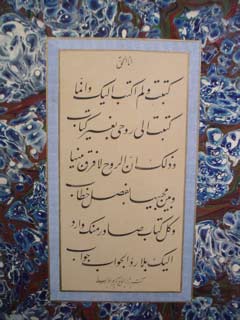 انا الحق
كتبت ولم اكتب اليك وانما
كتبت الى روحي بغير كتاب
وذلك ان الروح لا فرق بينها
وبين محبيها بفصل خطاب
وكل كتاب صادر منك وارد
اليك بلا رد الجواب جواب